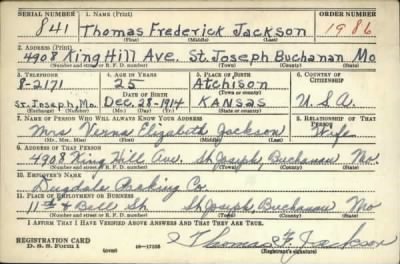 SERIAL NUMBER 1. NAME (Print) ORDER NUMBER
841 Thomas Frederick Jackson 1986
(First) (Middle) (Last)
2. ADDRESS (Print)
4908 King Hill Ave. St. Joseph Buchanan Mo
(Number and street or R. F. D. number) (Town) (County) (State)
3. TELEPHONE 4. AGE IN YEARS 5. PLACE OF BIRTH 6. COUNTRY OF CITIZENSHIP
8-2171 25 Atchison
DATE OF BIRTH (Town or county)
St. Joseph, Mo. Dec. 28-1914 Kansas U.S.A.
(Exchange) (Mo.) (Day) (Yr.) (State or country)
7. NAME OF PERSON WHO WILL ALWAYS KNOW YOUR ADDRESS 8. RELATIONSHIP OF THAT PERSON
Mrs. Verna Elizabeth Jackson Wife
(Mr., Mrs., Miss) (First) (Middle) (Last)
9. ADDRESS OF THAT PERSON
4908 King Hill Ave. St. Joseph, Buchanan Mo.
(Number and street or R. F. D. number) (Town) (County) (State)
10. EMPLOYER'S NAME
Dugdale Packing Co.
11. PLACE OF EMPLOYMENT OR BUSINESS
11th & Bell St. St. Joseph, Buchanan Mo
(Number and street or R. F. D. number) (Town) (County) (State)
I AFFIRM THAT I HAVE VERIFIED ABOVE ANSWERS AND THAT THEY ARE TRUE.
REGISTRATION CARD
D. S. S. Form 1 (over) Thomas F. Jackson
(Registrant's signature)